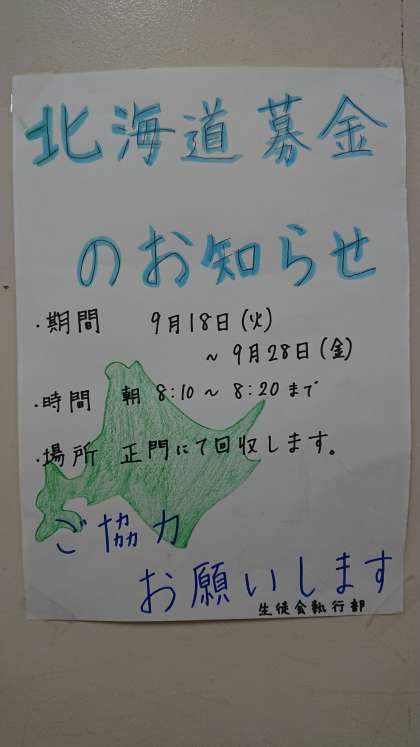 北海道募金
のお知らせ
・期間 9月18日(火)
～ 9月28日(金)
・時間 朝 8:10～8:20まで
・場所 正門にて回収します。
ご協力
お願いします
生徒会執行部